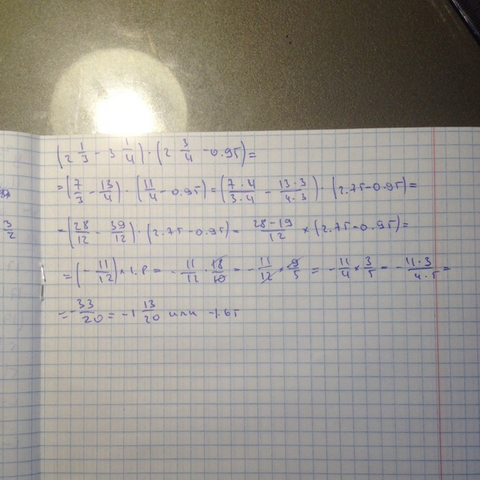 (2 1/3 - 3 1/4) · (2 3/4 - 0.95) =
= (7/3 - 13/4) · (11/4 - 0.95) = (7·4/3·4 - 13·3/4·3) · (2.75-0.95) =
3/2
= (28/12 - 39/12) · (2.75-0.95) = 28-19/12 × (2.75-0.95) =
= (-11/12) × 1.8 = -11/12 · 18/10 = -11/12 × 9/5 = -11/4 × 3/5 = -11·3/4·5 =
= -33/20 = -1 13/20 или -1.65